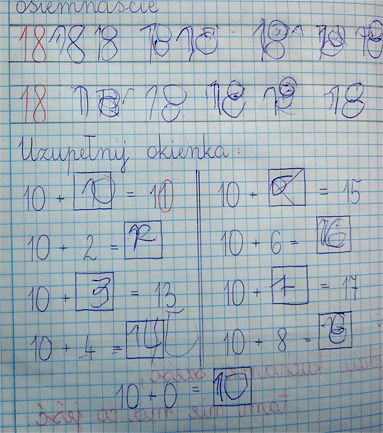 osiemnaście
18 18 18 18 18 18 18 18
18 18 18 18 18 18
Uzupełnij okienka:
10 + 10 = 10 10 + 5 = 15
10 + 2 = 12 10 + 6 = 16
10 + 3 = 13 10 + 7 = 17
10 + 4 = 14 10 + 8 = 8
10 + 0 = 10